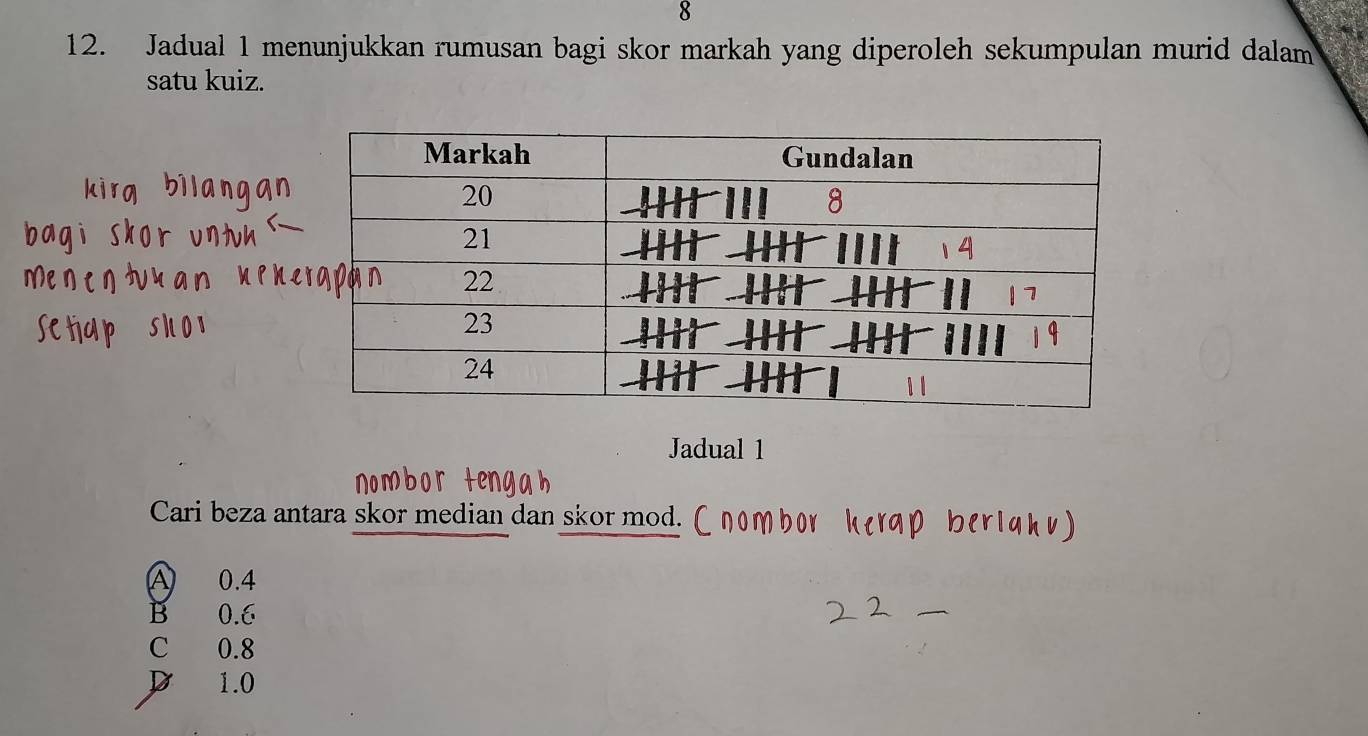 8
12. Jadual 1 menunjukkan rumusan bagi skor markah yang diperoleh sekumpulan murid dalam
satu kuiz.
Markah Gundalan
20 8
21 14
22 17
23 19
24 11
kira bilangan
bagi skor untuk ←
menentukan kekerapan
setiap skor
Jadual 1
nombor tengah
Cari beza antara skor median dan skor mod. (nombor kerap berlaku)
A 0.4
B 0.6
C 0.8
D 1.0
22 –